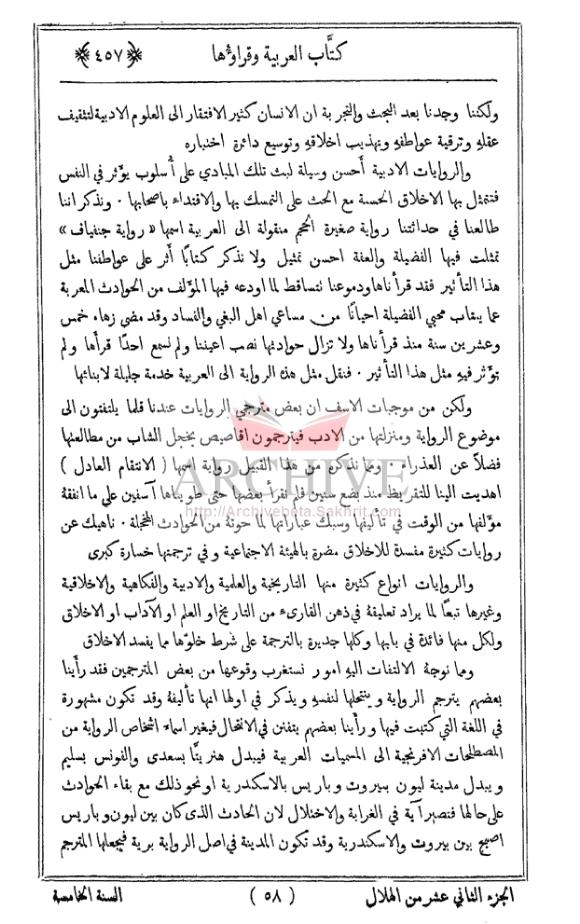 كتَّاب العربية وقراؤها
﴿٤٥٧﴾
ولكننا وجدنا بعد البحث والتجربة ان الانسان كثير الافتقار الى العلوم الادبية لتثقيف
عقلهِ وترقية عواطفهِ وتهذيب اخلاقهِ وتوسيع دائرة اختباره
والروايات الادبية أحسن وسيلة لبث تلك المبادي على أُسلوب يؤَثر في النفس
فتتمثل بها الاخلاق الحسنة مع الحث على التمسك بها والاقتداء باصحابها · ونذكر اننا
طالعنا في حداثتنا رواية صغيرة الحجم منقولة الى العربية اسمها « رواية جنفياف »
تمثلت فيها الفضيلة والعفة احسن تمثيل ولا نذكر كتابًا أثر على عواطفنا مثل
هذا التأثير فقد قرأناها ودموعنا نتساقط لما اودعه فيها المؤلف من الحوادث المعربة
عما ينتاب محبي الفضيلة احيانًا من مساعي اهل البغي والفساد وقد مضى زهاء خمس
وعشرين سنة منذ قرأناها ولا تزال حوادثها نصب اعيننا ولم نسمع احدًا قرأها ولم
تؤثر فيهِ مثل هذا التأثير · فنقل مثل هذه الرواية الى العربية خدمة جليلة لابنائها
ولكن من موجبات الاسف ان بعض مترجمي الروايات عندنا قلما يلتفتون الى
موضوع الرواية ومنزلتها من الادب فيترجمون اقاصيص يخجل الشاب من مطالعتها
فضلاً عن العذراء · ومما نذكره من هذا القبيل رواية اسمها ( الانتقام العادل )
اهديت الينا للتقريظ منذ بضع سنين فلم نقرأ بعضها حتى طويناها آسفين على ما انفقهُ
مؤلفها من الوقت في تأليفها وسبك عباراتها لما حوتهُ من الحوادث المخجلة · ناهيك عن
روايات كثيرة مفسدة للاخلاق مضرة بالهيئة الاجتماعية وفي ترجمتها خسارة كبرى
والروايات انواع كثيرة منها التاريخية والعلمية والادبية والفكاهية والاخلاقية
وغيرها تبعًا لما يراد تعليقهُ في ذهن القارىء من التاريخ او العلم او الآداب او الاخلاق
ولكل منها فائدة في بابها وكلها جديرة بالترجمة على شرط خلوّها مما يفسد الاخلاق
ومما توجهُ الالتفات اليهِ امور نستغرب وقوعها من بعض المترجمين فقد رأينا
بعضهم يترجم الرواية وينتحلها لنفسهِ ويذكر في اولها انها تأليفهُ وقد تكون مشهورة
في اللغة التي كتبت فيها ورأينا بعضهم يتفنن في الانتحال فيغير اسماء اشخاص الرواية من
المصطلحات الافرنجية الى المسميات العربية فيبدل هنريتَّا بسعدى والفونس بسليم
ويبدل مدينة ليون ببيروت وباريس بالاسكندرية او نحو ذلك مع بقاء الحوادث
على حالها فتصير آية في الغرابة والاختلال لان الحادث الذي كان بين ليون وباريس
اصبح بين بيروت والاسكندرية وقد تكون المدينة في اصل الرواية برية فيجعلها المترجم
الجزء الثاني عشر من الهلال
( ٥٨ )
السنة الخامسة
ARCHIVE
http://Archivebeta.Sakhrit.com